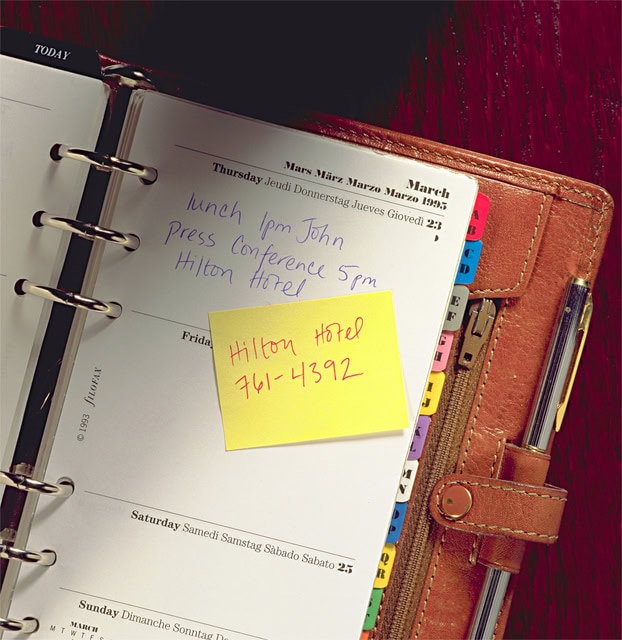 TODAY
March
Mars März Marzo Marzo 1995
Thursday Jeudi Donnerstag Jueves Giovedì 23
lunch 1pm John
Press Conference 5pm
Hilton Hotel
Frida
Hilton Hotel
761-4392
© 1993 fILOFAX
Saturday Samedi Samstag Sàbado Sabato 25
Sunday Dimanche Sonntag Do
MARCH
M T W T F S
A B
C D
E F
G H
I J
K L
M N
O P
Q R